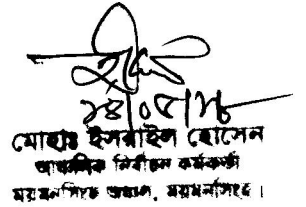 ২৪/০৫/২৮
মোহাঃ ইসরাইল হোসেন
আঞ্চলিক নির্বাচন কর্মকর্তা
ময়মনসিংহ অঞ্চল, ময়মনসিংহ।